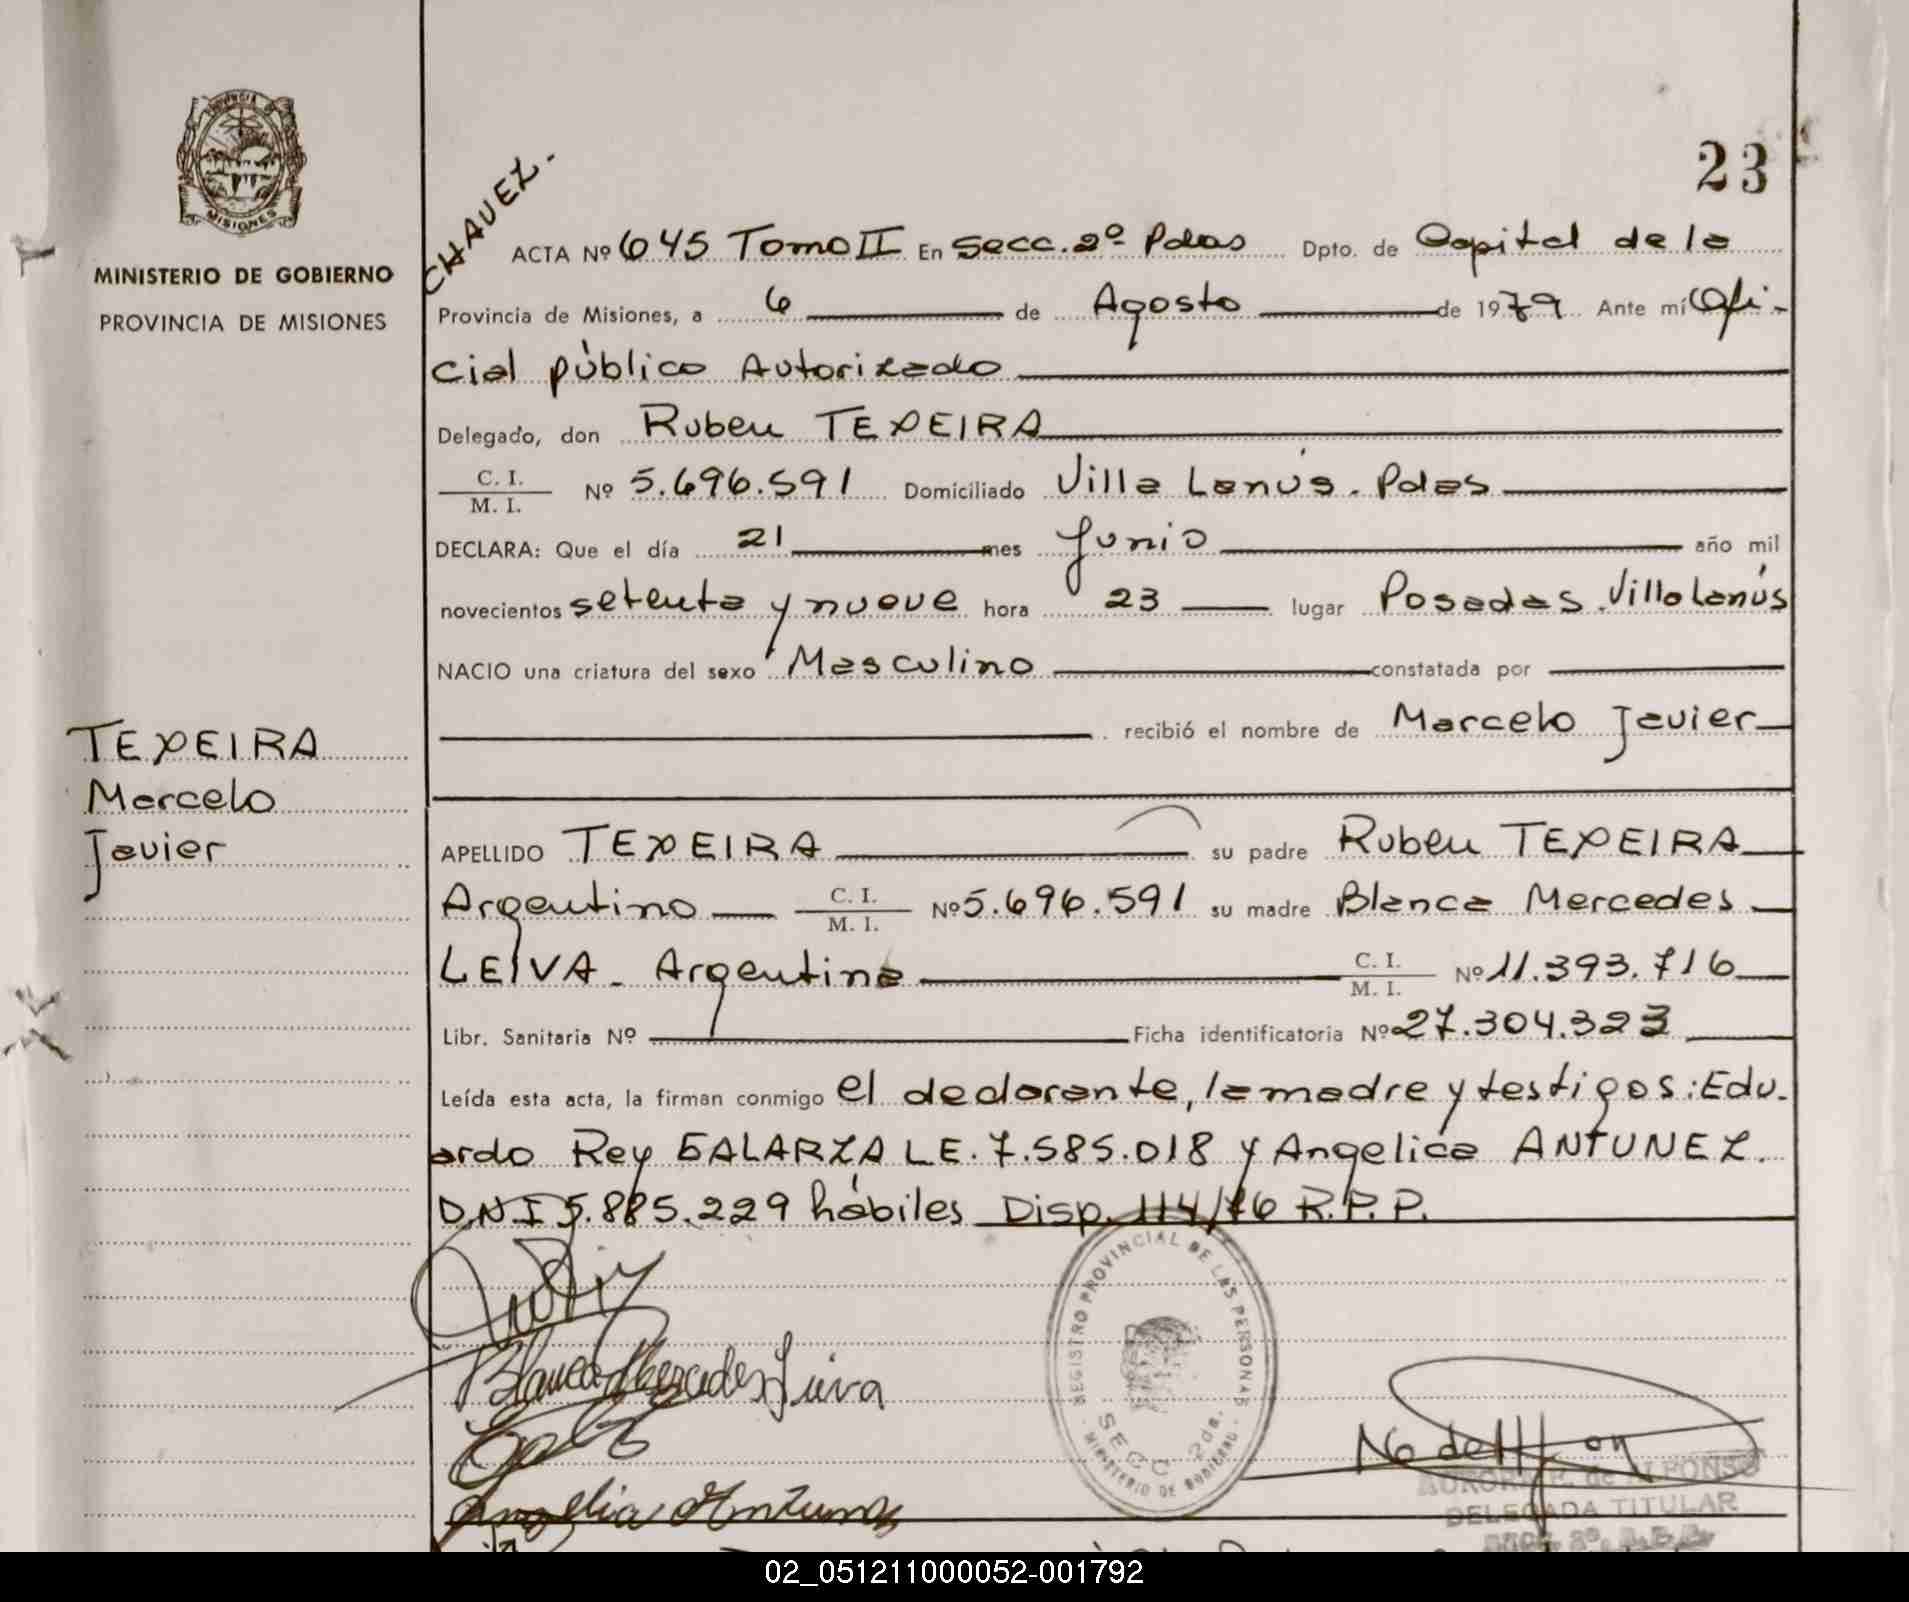 PROVINCIA DE
MISIONES
MINISTERIO DE GOBIERNO
PROVINCIA DE MISIONES
23
CHAVEZ.-
ACTA Nº 645 Tomo II En Secc. 2º Pdas Dpto. de Capital de la
Provincia de Misiones, a 6 de Agosto de 1979 Ante mí Ofi-
cial público Autorizado
Delegado, don Ruben TEXEIRA
C. I.
M. I. Nº 5.696.591 Domiciliado Villa Lanús. Pdas
DECLARA: Que el día 21 mes Junio año mil
novecientos setenta y nueve hora 23 lugar Posadas. Villa Lanús
NACIO una criatura del sexo Masculino constatada por
recibió el nombre de Marcelo Javier
TEXEIRA
Marcelo
Javier
APELLIDO TEXEIRA su padre Ruben TEXEIRA
Argentino C. I.
M. I. Nº 5.696.591 su madre Blanca Mercedes
LEIVA - Argentina C. I.
M. I. Nº 11.393.716
Libr. Sanitaria Nº Ficha identificatoria Nº 27.304.323
Leída esta acta, la firman conmigo el declarante, la madre y testigos: Edu-
ardo Rey GALARZA LE. 7.585.018 y Angelica ANTUNEZ.
DNI 5.885.229 hábiles Disp. 114/76 R.P.P.
Blanca Mercedes Leiva
REGISTRO PROVINCIAL DE LAS PERSONAS
SECC. 2da.
MINISTERIO DE GOBIERNO
AURORA F. de ALFONSO
DELEGADA TITULAR
02_051211000052-001792